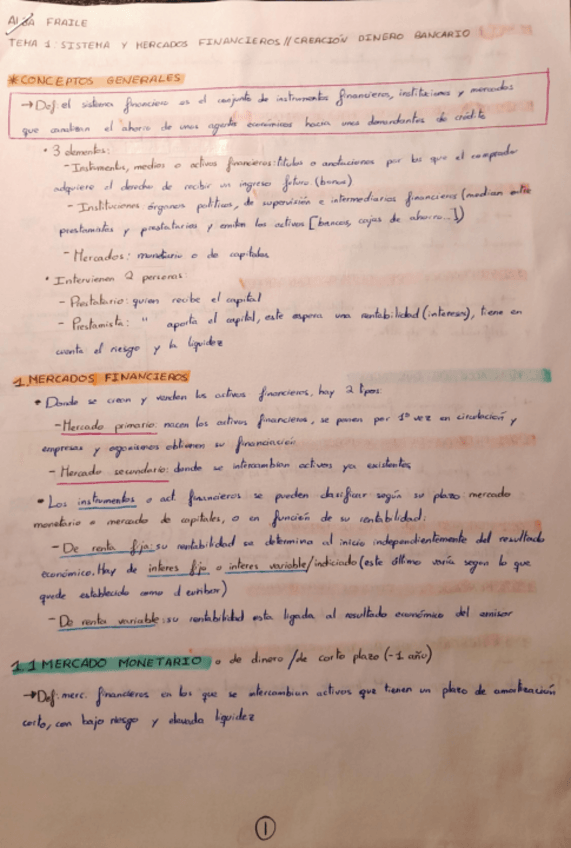 FRAILE
TEMA 1: SISTEMA Y MERCADOS FINANCIEROS // CREACIÓN DINERO BANCARIO
*CONCEPTOS GENERALES
→ Def: el sistema financiero es el conjunto de instrumentos financieros, instituciones y mercados
que canalizan el ahorro de unos agentes económicos hacia unos demandantes de crédito
• 3 elementos:
- Instrumentos, medios o activos financieros: títulos o anotaciones por los que el comprador
adquiere el derecho de recibir un ingreso futuro. (bonos)
- Instituciones órganos políticos, de supervisión e intermediarios financieros (median entre
prestamistas y prestatarios y emiten los activos [bancos, cajas de ahorro...])
- Mercados: monetario o de capitales
• Intervienen 2 personas:
- Prestatario: quien recibe el capital
- Prestamista: " aporta el capital, este espera una rentabilidad (intereses), tiene en
cuenta el riesgo y la liquidez
1. MERCADOS FINANCIEROS
• Donde se crean y venden los activos financieros, hay 2 tipos:
- Mercado primario: nacen los activos financieros, se ponen por 1ª vez en circulación y
empresas y organismos obtienen su financiación
- Mercado secundario: donde se intercambian activos ya existentes
• Los instrumentos o act. financieros se pueden clasificar según su plazo: mercado
monetario o mercado de capitales, o en función de su rentabilidad:
- De renta fija: su rentabilidad se determina al inicio independientemente del resultado
económico. Hay de interes fijo o interes variable/indiciado (este último varía segun lo que
quede establecido como el euribor)
- De renta variable: su rentabilidad esta ligada al resultado económico del emisor
1.1 MERCADO MONETARIO o de dinero / de corto plazo (-1 año)
→ Def: merc. financieros en los que se intercambian activos que tienen un plazo de amortización
corto, con bajo riesgo y elevada liquidez
1